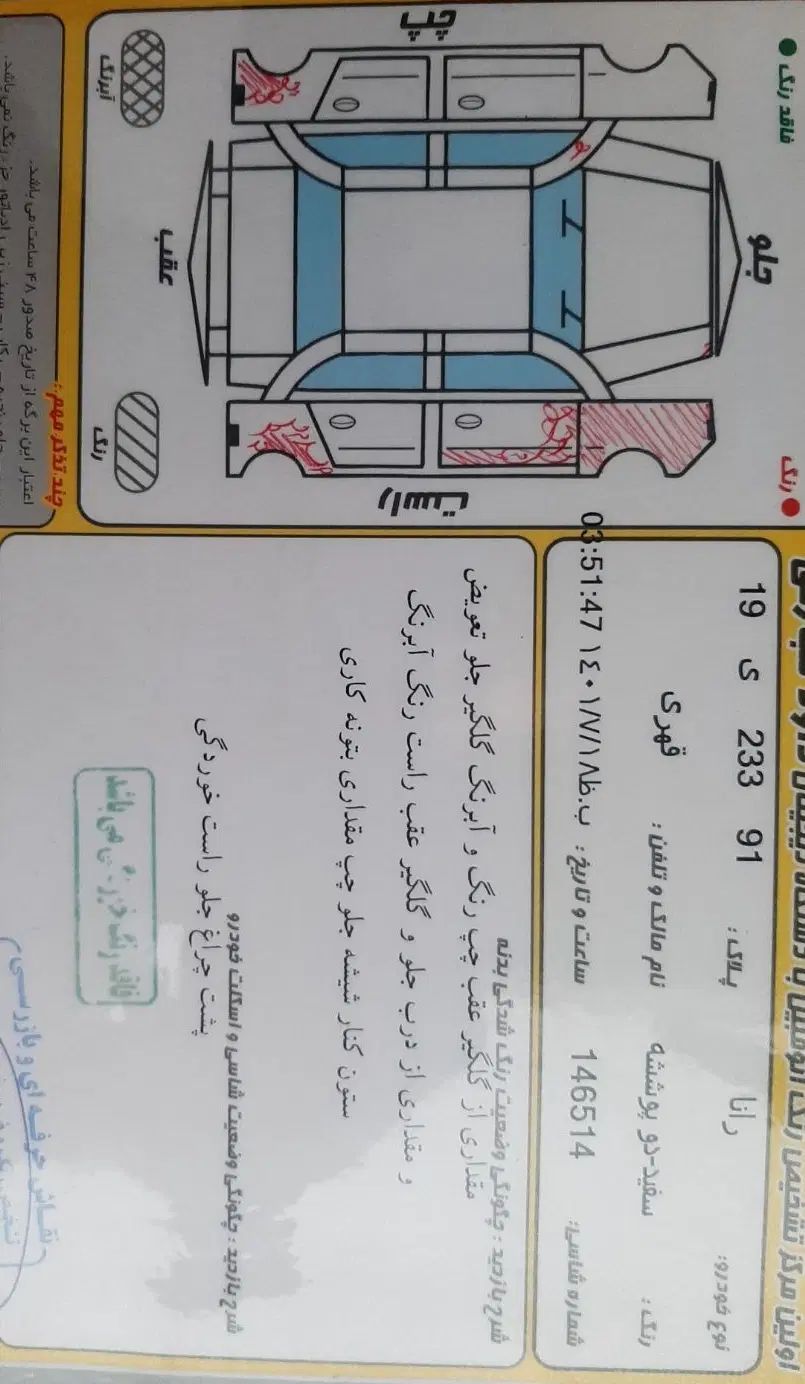 اولین مرکز تشخیص رنگ اتومبیل با دستگاه دیجیتال
نوع خودرو: رانا
پلاک: 19 ی 233 91
رنگ: سفید-دو پوششه
نام مالک و تلفن: قهری
شماره شاسی: 146514
ساعت و تاریخ: 03:51:47 ١٤٠١/٧/١٨ ب.ظ
شرح بازدید: چگونگی وضعیت رنگ شدگی بدنه
مقداری از گلگیر عقب چپ رنگ و آبرنگ گلگیر جلو تعویض
و مقداری از درب جلو و گلگیر عقب راست رنگ آبرنگ
ستون کنار شیشه جلو چپ مقداری بتونه کاری
شرح بازدید: چگونگی وضعیت شاسی و اسکلت خودرو
پشت چراغ جلو راست خوردگی
فاقد رنگ
رنگ
جلو
چپ
راست
عقب
آبرنگ
رنگ
چند تذکر مهم:
اعتبار این برگه از تاریخ صدور ۴۸ ساعت می باشد.
نقاش حرفه ای و بازرسی